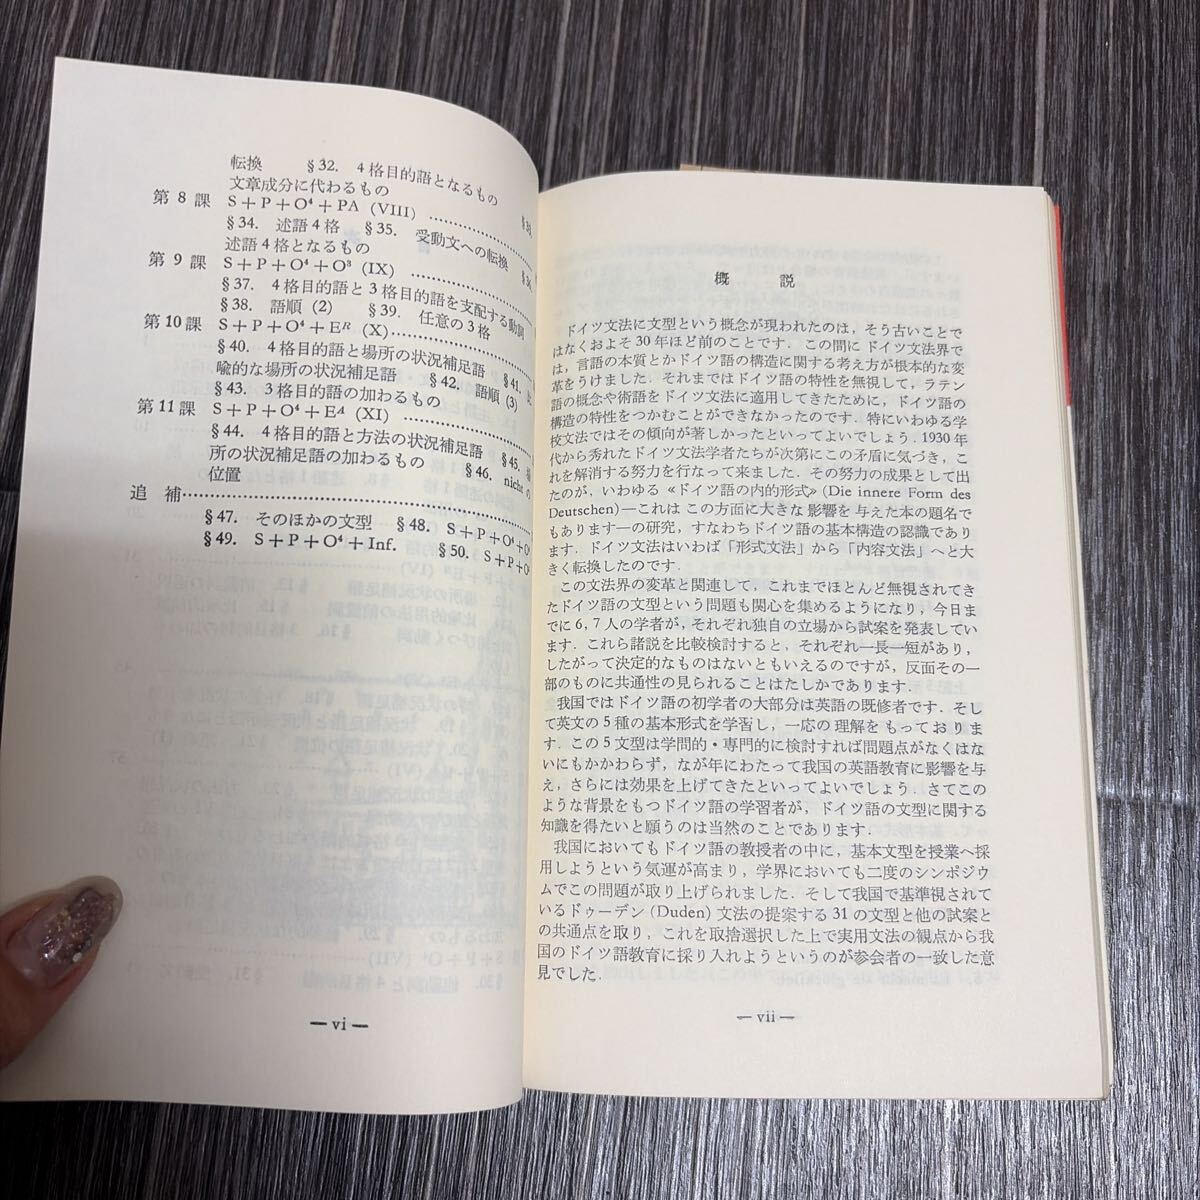 転換　§32.　4格目的語となるもの
文章成分に代わるもの
第8課　S＋P＋O⁴＋PA (VIII) ……………… §33.
§34.　述語4格　§35.　受動文への転換　§36.
述語4格となるもの
第9課　S＋P＋O⁴＋O³ (IX) ………………
§37.　4格目的語と3格目的語を支配する動詞
§38.　語順 (2)　§39.　任意の3格
第10課　S＋P＋O⁴＋Eᴿ (X)………………
§40.　4格目的語と場所の状況補足語　§41.
喩的な場所の状況補足語　§42.　語順 (3)
§43.　3格目的語の加わるもの
第11課　S＋P＋O⁴＋Eᴬ (XI) ………………
§44.　4格目的語と方法の状況補足語　§45.
所の状況補足語の加わるもの　§46.　nicht の
位置
追　補………………………………
§47.　そのほかの文型　§48.　S＋P＋O⁴＋O⁴
§49.　S＋P＋O⁴＋Inf.　§50.　S＋P＋O⁴
— vi —
概　説
ドイツ文法に文型という概念が現われたのは，そう古いことで
はなくおよそ30年ほど前のことです．この間にドイツ文法界で
は，言語の本質とかドイツ語の構造に関する考え方が根本的な変
革をうけました．それまではドイツ語の特性を無視して，ラテン
語の概念や術語をドイツ文法に適用してきたために，ドイツ語の
構造の特性をつかむことができなかったのです．特にいわゆる学
校文法ではその傾向が著しかったといってよいでしょう．1930年
代から秀れたドイツ文法学者たちが次第にこの矛盾に気づき，こ
れを解消する努力を行なって来ました．その努力の成果として出
たのが，いわゆる≪ドイツ語の内的形式≫(Die innere Form des
Deutschen)—これはこの方面に大きな影響を与えた本の題名で
もあります—の研究，すなわちドイツ語の基本構造の認識であり
ます．ドイツ文法はいわば「形式文法」から「内容文法」へと大
きく転換したのです．
この文法界の変革と関連して，これまでほとんど無視されてき
たドイツ語の文型という問題も関心を集めるようになり，今日ま
でに6, 7人の学者が，それぞれ独自の立場から試案を発表してい
ます．これら諸説を比較検討すると，それぞれ一長一短があり，
したがって決定的なものはないともいえるのですが，反面その一
部のものに共通性の見られることはたしかであります．
我国ではドイツ語の初学者の大部分は英語の既修者です．そし
て英文の5種の基本形式を学習し，一応の理解をもっておりま
す．この5文型は学問的・専門的に検討すれば問題点がなくはな
いにもかかわらず，なが年にわたって我国の英語教育に影響を与
え，さらには効果を上げてきたといってよいでしょう．さてこの
ような背景をもつドイツ語の学習者が，ドイツ語の文型に関する
知識を得たいと願うのは当然のことであります．
我国においてもドイツ語の教授者の中に，基本文型を授業へ採
用しようという気運が高まり，学界においても二度のシンポジウ
ムでこの問題が取り上げられました．そして我国で基準視されて
いるドゥーデン(Duden)文法の提案する31の文型と他の試案と
の共通点を取り，これを取捨選択した上で実用文法の観点から我
国のドイツ語教育に採り入れようというのが参会者の一致した意
見でした．
— vii —